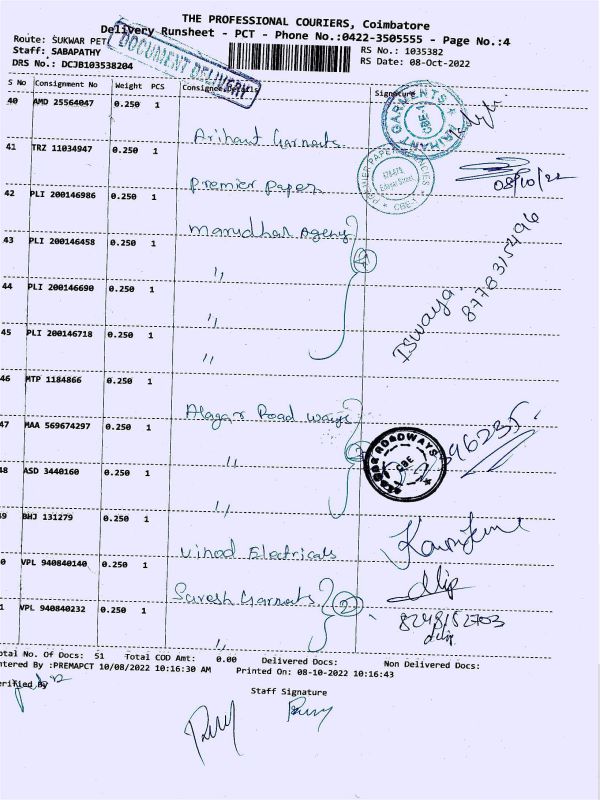 THE PROFESSIONAL COURIERS, Coimbatore
Delivery Runsheet - PCT - Phone No.:0422-3505555 - Page No.:4
Route: SUKWAR PET
Staff: SABAPATHY
DRS No.: DCJB103538204
DOCUMENT DELIVERY
RS No.: 1035382
RS Date: 08-Oct-2022
S No Consignment No Weight PCS Consignee Details Signature
40 AMD 25564047 0.250 1
Arihant Garments
ARIHANT GARMENTS CBE-1
41 TRZ 11034947 0.250 1
Premier Paper
PREMIER PAPER AGENCIES CBE-1
08/10/22
42 PLI 200146986 0.250 1
Marudhar Agency
43 PLI 200146458 0.250 1
" 4
44 PLI 200146690 0.250 1
"
Iswarya
8778315496
45 PLI 200146718 0.250 1
"
46 MTP 1184866 0.250 1
Alagar Road ways
47 MAA 569674297 0.250 1
" 3
ALAGAR ROADWAYS CBE
48 ASD 3440160 0.250 1
"
49 BHJ 131279 0.250 1
Vinod Electricals
0 VPL 940840140 0.250 1
Suresh Garments 2
dilip
1 VPL 940840232 0.250 1
"
8248152703
dilip
otal No. Of Docs: 51 Total COD Amt: 0.00 Delivered Docs: Non Delivered Docs:
ntered By :PREMAPCT 10/08/2022 10:16:30 AM Printed On: 08-10-2022 10:16:43
erified By
Staff Signature